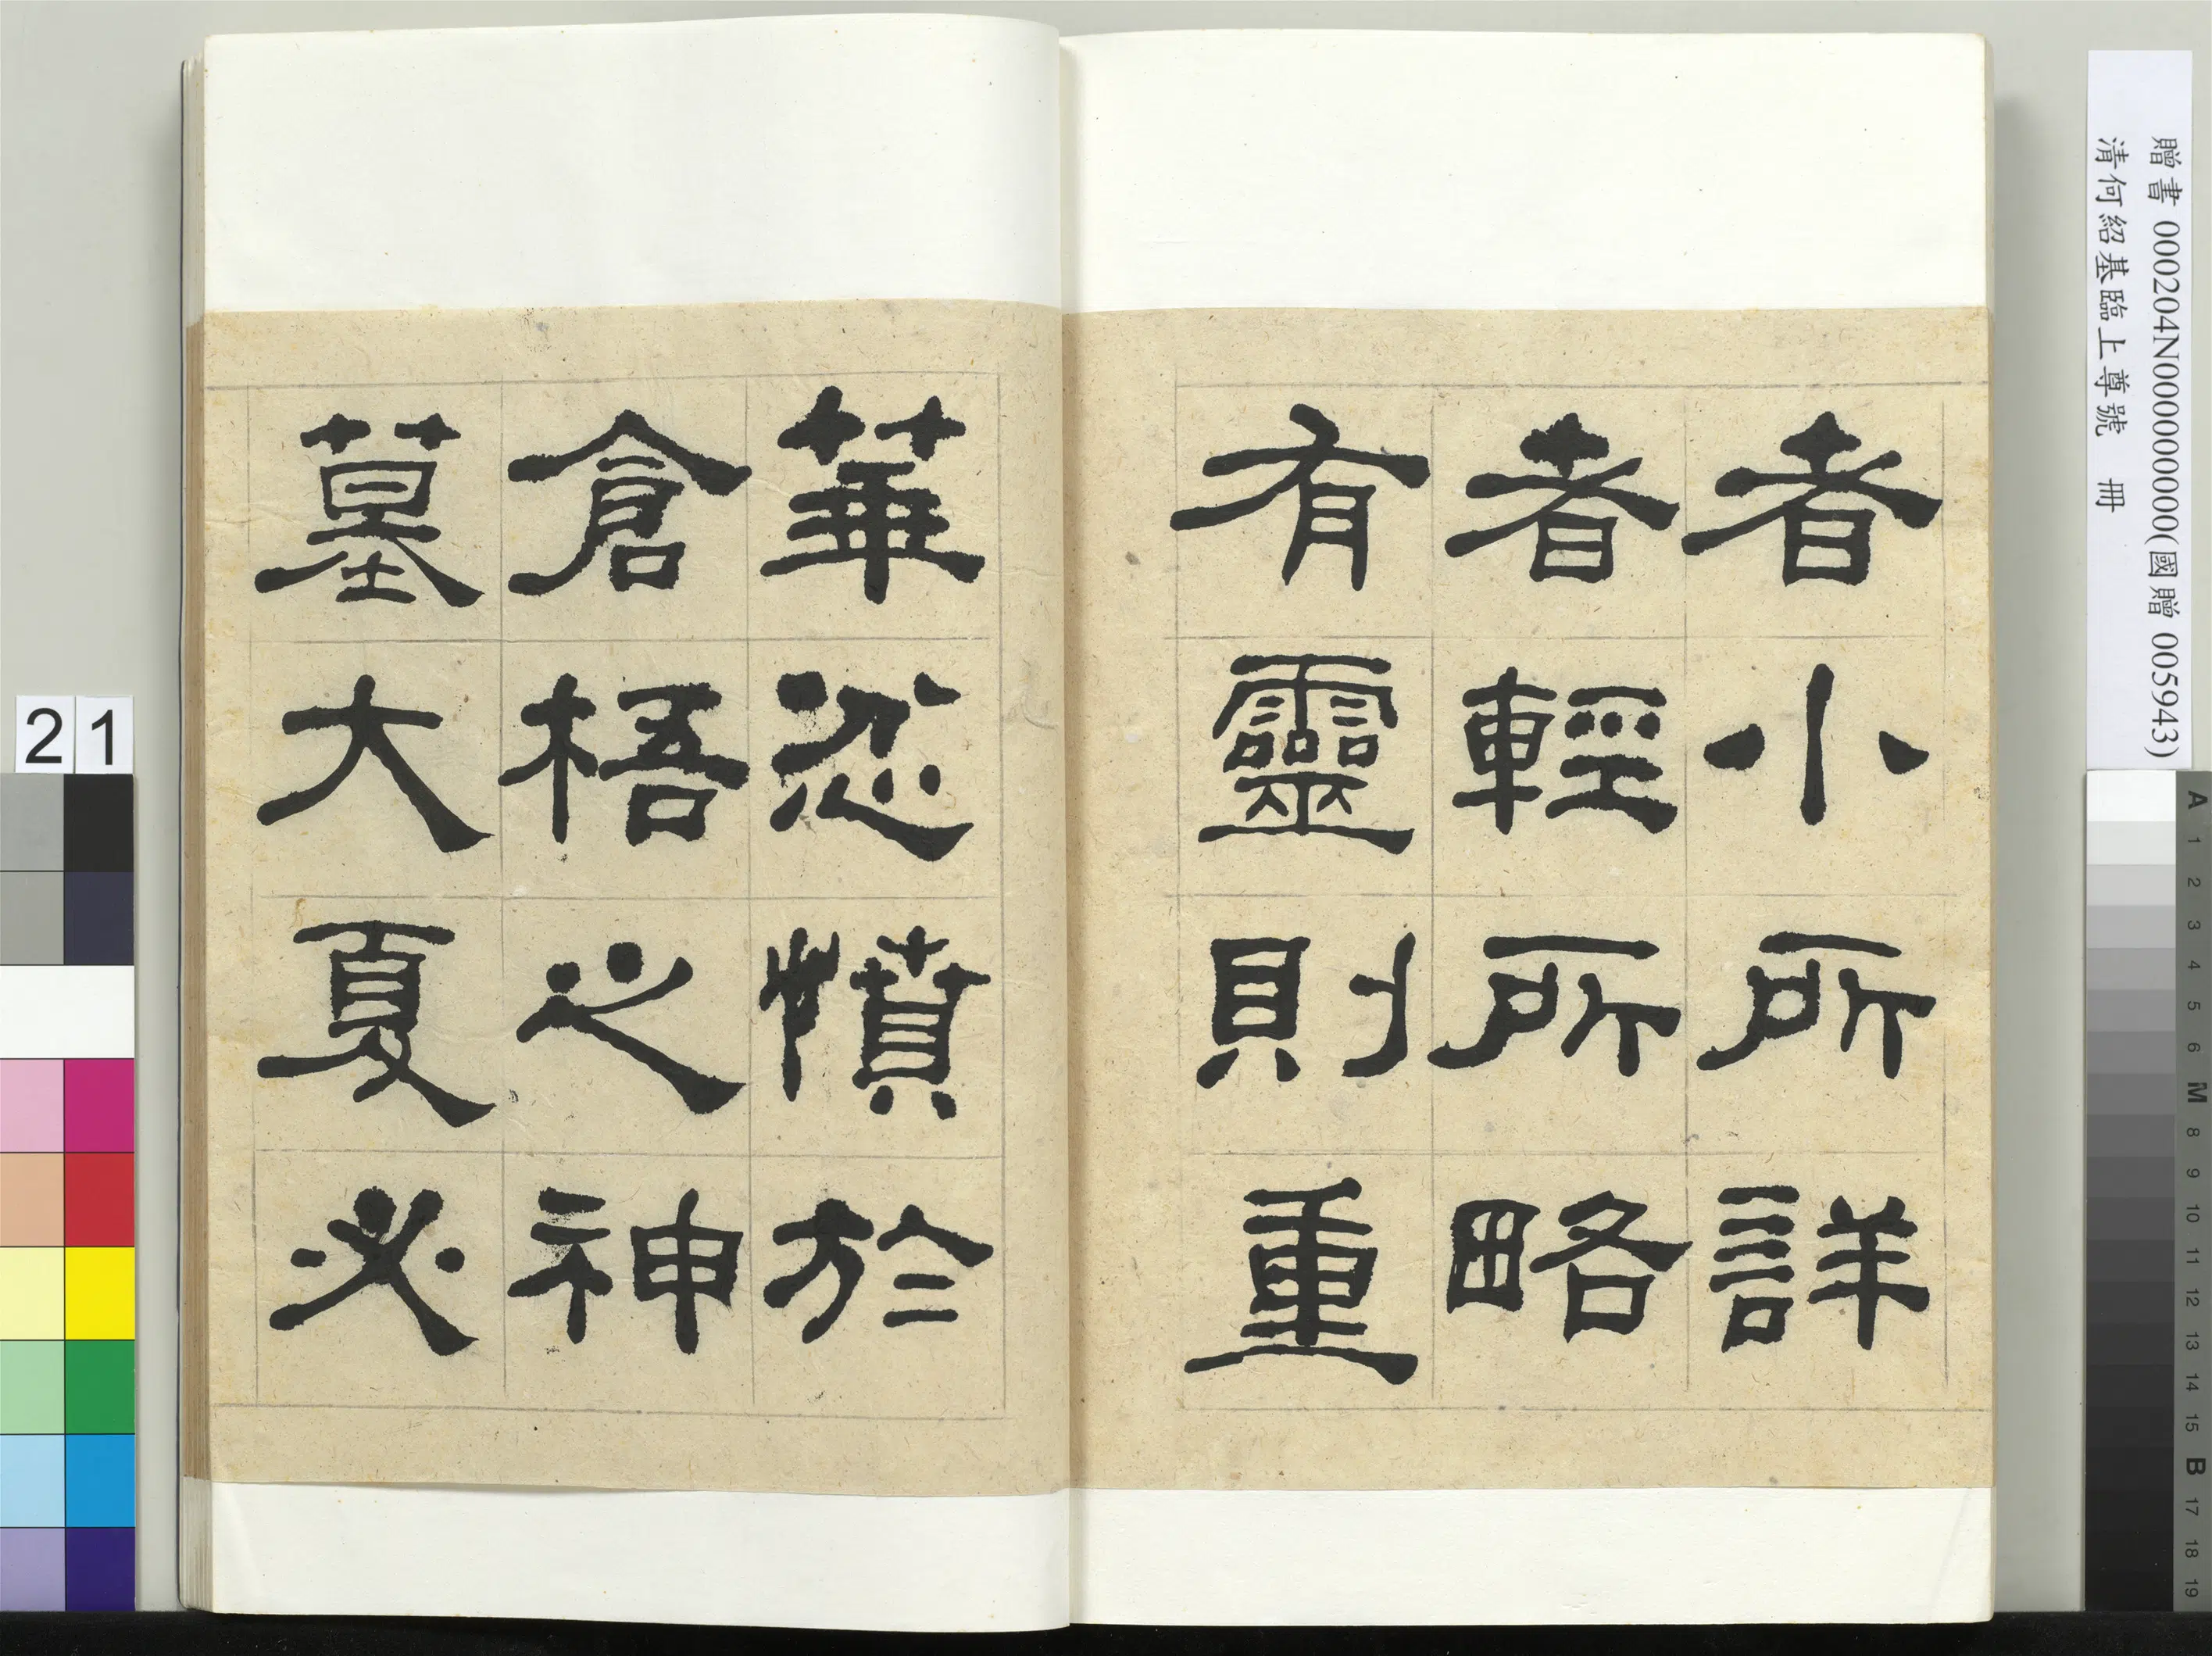 贈書 000204N000000000(國贈 005943)
清何紹基臨上尊號 冊
者小所詳
者輕所略
有靈則重
華忿憤於
倉梧之神
墓大夏必
21
A 1 2 3 4 5 6 M 8 9 10 11 12 13 14 15 B 17 18 19